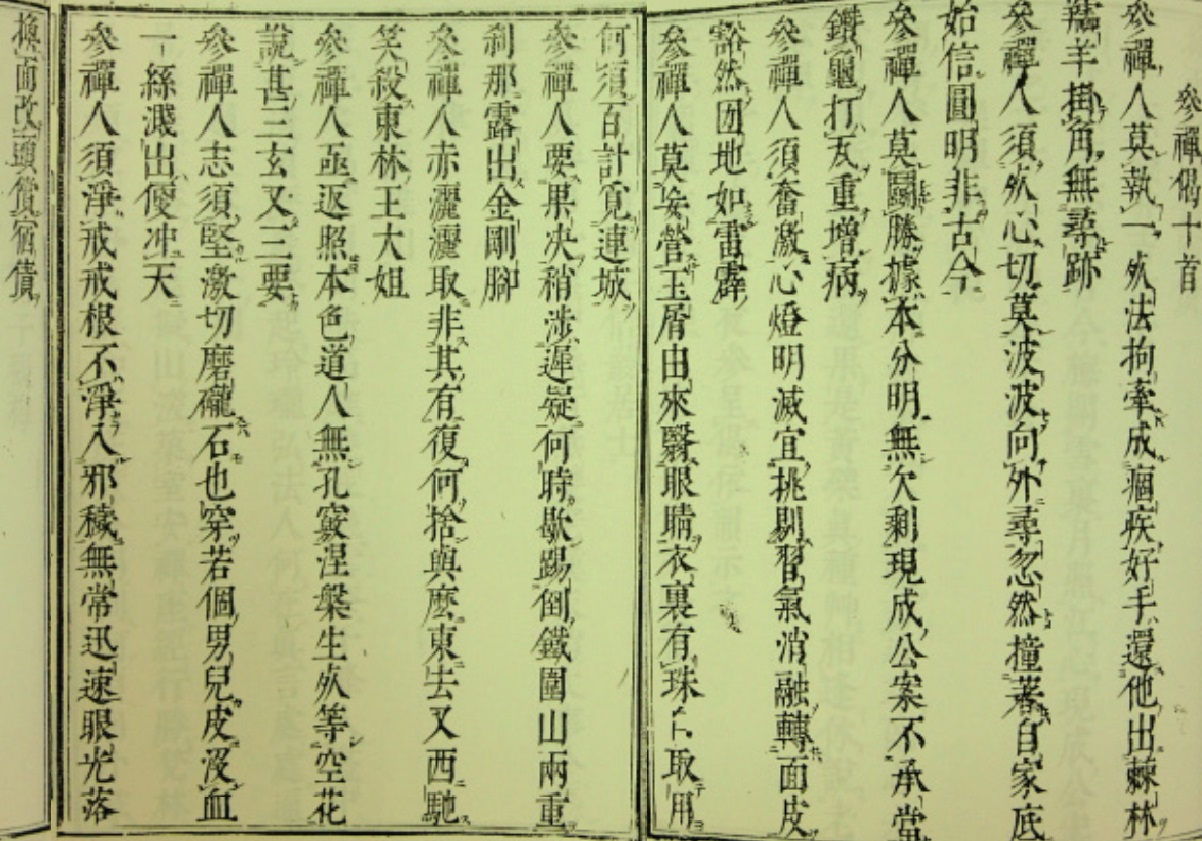 參禪偈十首
參禪人莫執一死法拘牽成痼疾好手還他出棘林
羚羊掛角無尋跡
參禪人須死心切莫波波向外尋忽然撞著自家底
始信圓明非古今
參禪人莫鬪勝據本分明無欠剩現成公案不承當
鑽龜打瓦重增病
參禪人須奮激心燈明滅宜挑剔習氣消融轉面皮
豁然囫地如雷霹
參禪人莫妄營玉屑由來翳眼睛衣裏有珠不取用
何須百計覓連城
參禪人要果决稍涉遲疑何時歇踢倒鐵圍山兩重
刹那露出金剛腳
參禪人赤灑灑取非其有復何捨與麼東去又西馳
笑殺東林王大姐
參禪人亟返照本色道人無孔竅涅槃生死等空花
說甚三玄又三要
參禪人志須堅激切磨礲石也穿若個男兒皮沒血
一絲濺出便冲天
參禪人須淨戒戒根不淨入邪穢無常迅速眼光落
換面改頭償宿債